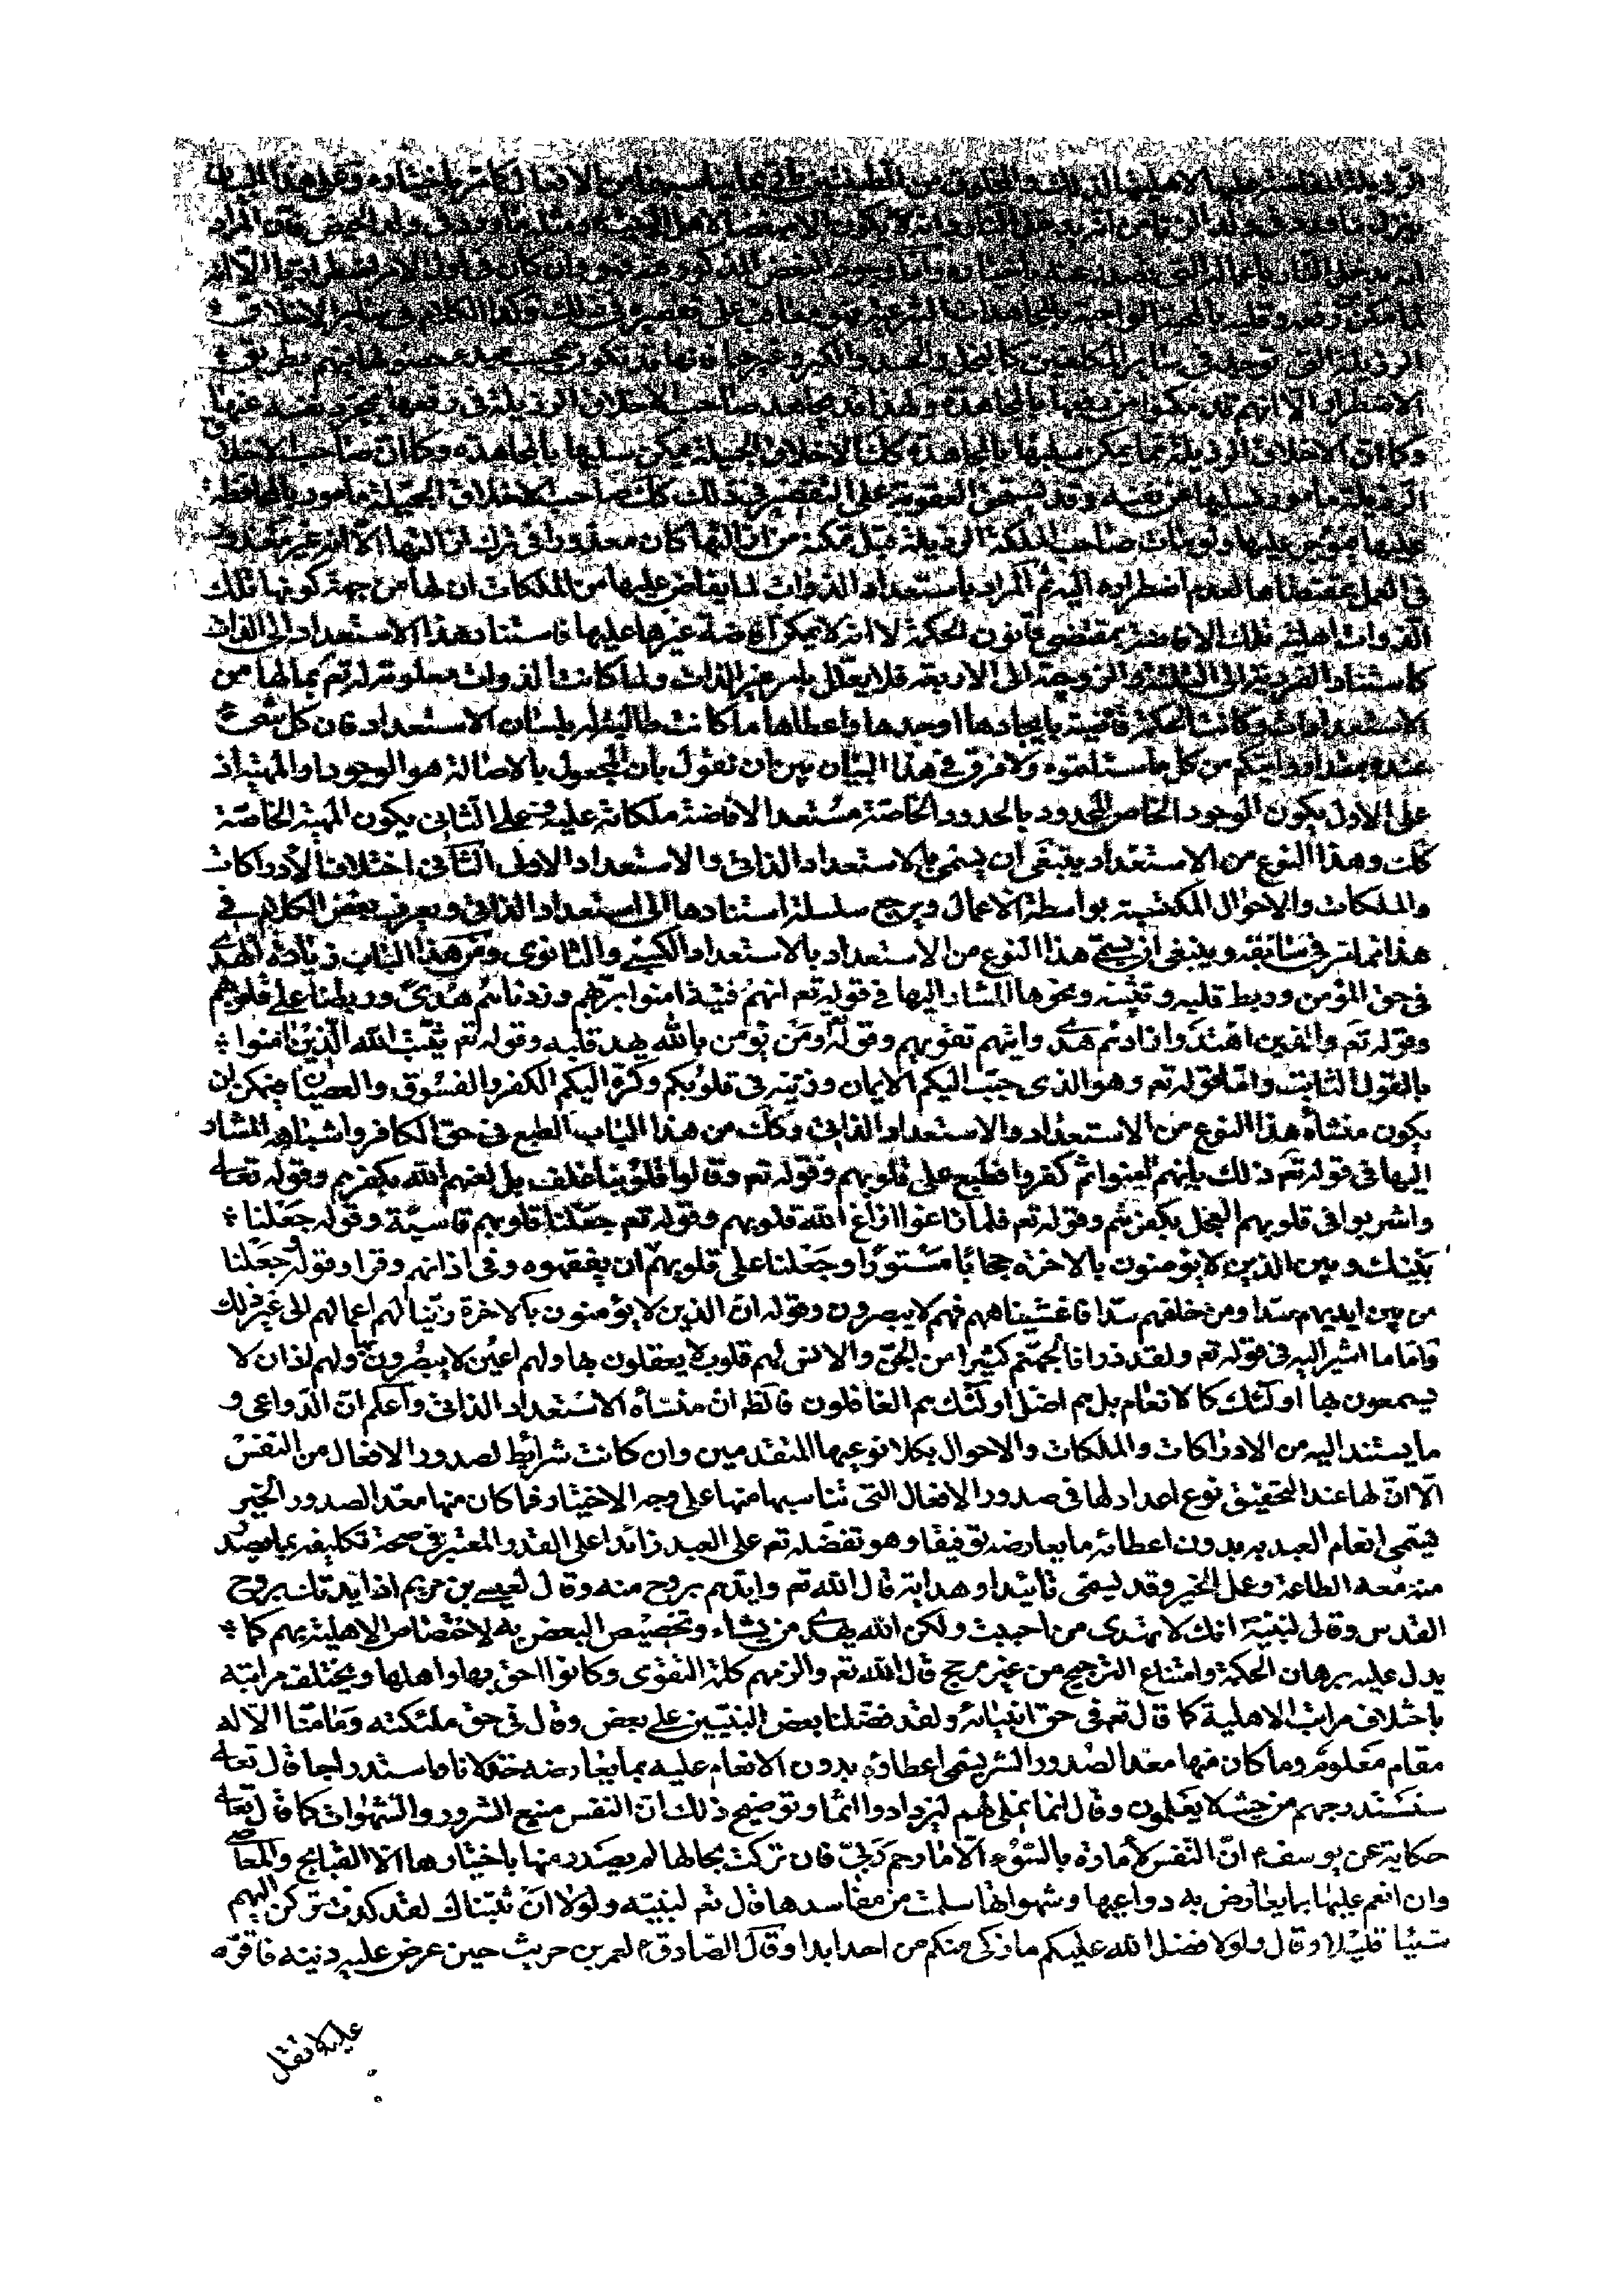 الرذيلة الفاسدة عليها لاهليتها لذلك والخلو في من الطينتين ياتى ما يناسبهما من الافعال كانت باختياره وعلى هذا البيان
ينزل ما ورد فى ولد الزنا من انه يدخل النار وانه لا يكون الا مبغضا لاهل البيت ومثله ما ورد فى ولد الحيض فان المراد
انه يدخل النار باعماله التى تصدر عنه باختياره واما وجود البغض المذكور فيه فهو وان كان فى اول الامر اضطراريا الا انه
لما مكن رفعه وقلبه بالمحبة الواجبة بالمجاهدات الشرعية فهو معاقب على تقصيره فى ذلك وكذا الكلام فى سائر الاخلاق
الرذيلة التى توجد فى سائر المكلفين كالبخل والحسد والكبر وغيرها فانها قد تكون بحسب بدء حصولها فيهم بطريق
الاضطرار الا انهم قد تمكنوا من رفعها بالمجاهدة ولهذا قد يجاهد صاحب الاخلاق الرذيلة فى رفعها فيجرد نفسه عنها
وكما ان الاخلاق الرذيلة مما يمكن سلبها بالمجاهدة كك الاخلاق الجميلة يمكن سلبها بالمجاهدة وكما ان صاحب الاخلاق
الرذيلة مامور بسلبها عن نفسه وقد يستحق العقوبة على التقصير فى ذلك كك صاحب الاخلاق الجميلة مامور بالمحافظة
عليها فيؤجر عليها ولو مات صاحب الملكة الرذيلة قبل تمكنه من ازالتها كان معذورا فى ترك ازالتها الا انه غير معذور
فى العمل بمقتضاها لعدم اضطراره اليه ثم المراد باستعداد الذوات لما يفاض عليها من الملكات ان لها من جهة كونها تلك
الذوات اهلية تلك الافاضة بمقتضى قانون الحكمة لا انه لا يمكن افاضة غيرها عليها فاستناد هذا الاستعداد الى الذات
كاستناد الفردية الى الثلثة والزوجية الى الاربعة فلا يعلل بامر غير الذات ولما كانت الذوات معلومة له تع بما لها من
الاستعدادات وكانت الحكمة قاضية بايجادها اوجدها واعطاها ما كانت طالبة له بلسان الاستعداد فان كل شئ
عنده بمقدار واتيكم من كل ما سئلتموه ولا فرق فى هذا البيان بين ان نقول بان المجعول بالاصالة هو الوجود او المهية اذ
على الاول يكون الوجود الخاص المحدود بالحدود الخاصة مستعدا لافاضة ملكاته عليه وعلى الثانى يكون المهية الخاصة
كك وهذا النوع من الاستعداد ينبغى ان يسمى بالاستعداد الذاتى والاستعداد الاولى الثانى اختلافنا لادراكات
والملكات والاحوال المكتسبة بواسطة الاعمال ويرجع سلسلة استنادها الى استعداد الذاتى ويعرف بعض الكلام فى
هذا مما مر فى سابقه وينبغى ان يسمى هذا النوع من الاستعداد بالاستعداد الكسبى والثانوى ومن هذا الباب زيادة الهدى
فى حق المؤمن وربط قلبه وتثبته ونحوها المشار اليها فى قوله تع انهم فتية امنوا بربهم وزدناهم هدى وربطنا على قلوبهم
وقوله تع والذين اهتدوا زادهم هدى واتيهم تقويهم وقوله ومن يؤمن بالله يهد قلبه وقوله تع يثبت الله الذين امنوا
بالقول الثابت واما قوله تع وهو الذى حبب اليكم الايمان وزينه فى قلوبكم وكره اليكم الكفر والفسوق والعصيان فيمكن ان
يكون منشاه هذا النوع من الاستعداد والاستعداد الذاتى وكك من هذا الباب الطبع فى حق الكافر واشباهه المشار
اليها فى قوله تع ذلك بانهم امنوا ثم كفروا فطبع على قلوبهم وقوله تع وقالوا قلوبنا غلف بل لعنهم الله بكفرهم وقوله تعالى
واشربوا فى قلوبهم العجل بكفرهم وقوله تع فلما زاغوا ازاغ الله قلوبهم وقوله تع جعلنا قلوبهم قاسية وقوله جعلنا
بينك وبين الذين لا يؤمنون بالاخرة حجابا مستورا وجعلنا على قلوبهم ان يفقهوه وفى اذانهم وقرا وقوله جعلنا
من بين ايديهم سدا ومن خلفهم سدا فاغشيناهم فهم لا يبصرون وقوله ان الذين لا يؤمنون بالاخرة زينا لهم اعمالهم الى غير ذلك
واما ما اشير اليه فى قوله تع ولقد ذرانا لجهنم كثيرا من الجن والانس لهم قلوب لا يعقلون بها ولهم اعين لا يبصرون بها ولهم اذان لا
يسمعون بها اولئك كالانعام بل هم اضل اولئك هم الغافلون فالظ ان منشاه الاستعداد الذاتى واعلم ان الدواعى و
ما يستند اليه من الادراكات والملكات والاحوال بكلا نوعيها المتقدمين وان كانت شرائط لصدور الافعال من النفس
الا ان لها عند التحقيق نوع اعداد لها فى صدور الافعال التى تناسبها منها على وجه الاختيار فما كان منها معد الصدور الخير
فيسمى انعام العبد به بدون اعطائه ما يعارضه توفيقا وهو تفضله تع على العبد زائدا على القدر المعتبر فى صحة تكليفه بما يصد
منه معه الطاعة وعمل الخير وقد يسمى تائيدا وهداية قال الله تع وايدهم بروح منه وقال لعيسى بن مريم اذ ايدتك بروح
القدس وقال لنبيه انك لا تهدى من احببت ولكن الله يهدى من يشاء وتخصيص البعض به لاختصاص الاهلية بهم كما
يدل عليه برهان الحكمة وامتناع الترجيح من غير مرجح قال الله تع والزمهم كلمة التقوى وكانوا احق بها واهلها ويختلف مراتبه
باختلاف مراتب الاهلية كما قال تع فى حق انبيائه ولقد فضلنا بعض النبيين على بعض وقال فى حق ملئكته وما منا الا له
مقام معلوم وما كان منها معدا لصدور الشر يسمى اعطاؤه بدون الانعام عليه بما يعارضه خذلانا واستدراجا قال تعالى
سنستدرجهم من حيث لا يعلمون وقال انما نملى لهم ليزدادوا اثما وتوضيح ذلك ان النفس منبع الشرور والشهوات كما قال تعالى
حكاية عن يوسف ع ان النفس لأمارة بالسوء الا ما رحم ربى فان تركت بحالها لم يصدر منها باختيارها الا القبايح والمعاصى
وان انعم عليها بما يعارض به دواعيها وشهواتها سلمت من مفاسدها قال تع لنبيه ولولا ان ثبتناك لقد كدت تركن اليهم
شيئا قليلا وقال ولولا فضل الله عليكم ما زكى منكم من احد ابدا وقال الصادق ع لعمر بن حريث حين عرض عليه دينه فاقره
عليه لا تقتل